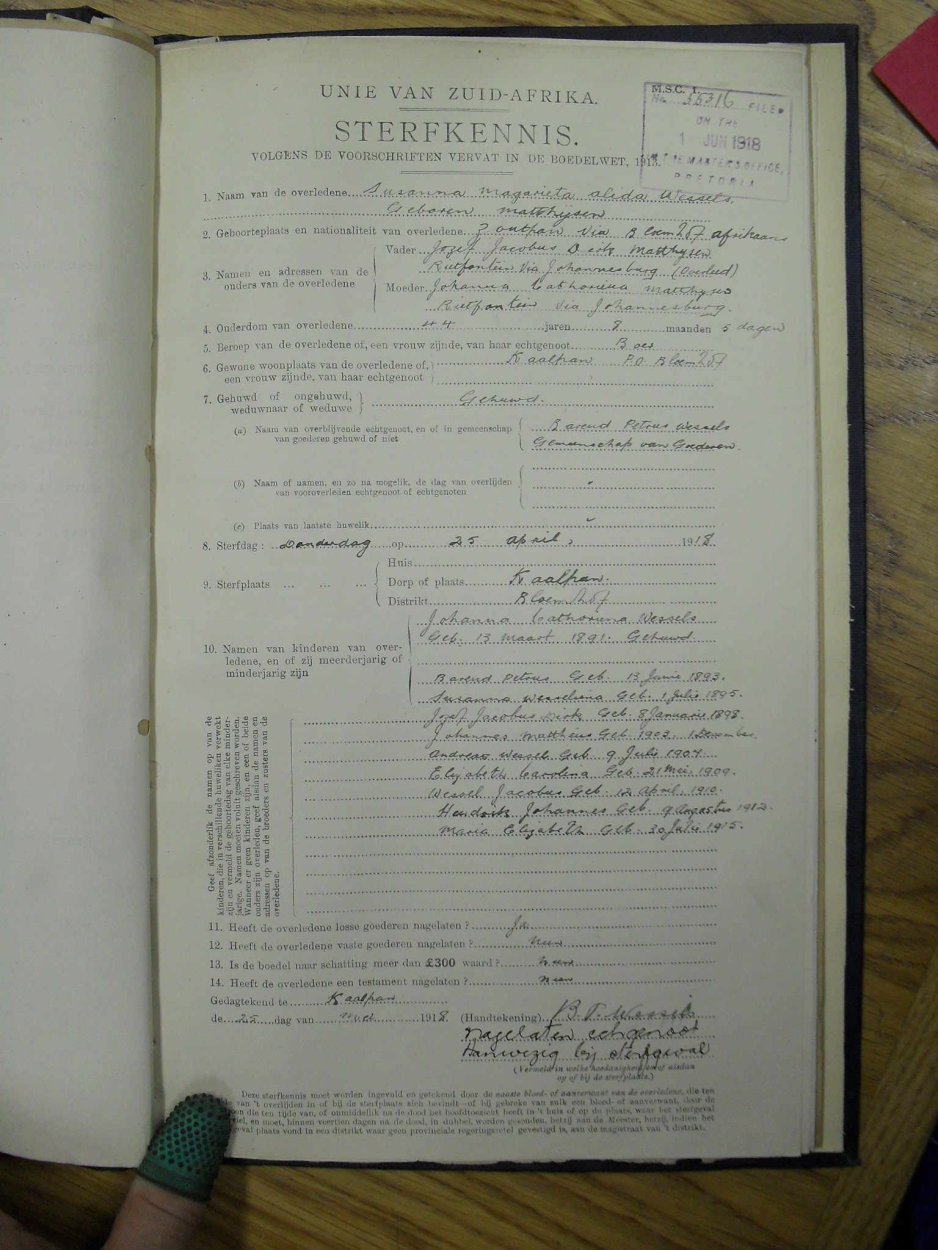 UNIE VAN ZUID-AFRIKA.
M.S.C. 1.
No. 35316 FILED
ON THE
1 JUN 1918
IN THE MASTER'S OFFICE,
PRETORIA
STERFKENNIS.
VOLGENS DE VOORSCHRIFTEN VERVAT IN DE BOEDELWET, 1913.
1. Naam van de overledene Susanna Magarieta Alida Wessels
Geboren Matthysen
2. Geboorteplaats en nationaliteit van overledene Zoutpan via Bloemhof Afrikaans
3. Namen en adressen van de ouders van de overledene
Vader Jozef Jacobus Derk Matthysen
Rietfontein via Johannesburg (Overleed)
Moeder Johanna Cathoriena Matthysen
Rietfontein via Johannesburg.
4. Ouderdom van overledene 44 jaren 8 maanden 5 dagen
5. Beroep van de overledene of, een vrouw zijnde, van haar echtgenoot Boer
6. Gewone woonplaats van de overledene of, Kaalpan P.O. Bloemhof
een vrouw zijnde, van haar echtgenoot
7. Gehuwd of ongehuwd, weduwnaar of weduwe Gehuwd.
(a) Naam van overblijvende echtgenoot, en of in gemeenschap Barend Petrus Wessels
van goederen gehuwd of niet Gemeenschap van Goederen
(b) Naam of namen, en zo na mogelik, de dag van overlijden
van vooroverleden echtgenoot of echtgenoten
(c) Plaats van laatste huwelik
8. Sterfdag: Donderdag op 25 April, 1918
9. Sterfplaats ... ... ...
Huis
Dorp of plaats Kaalpan.
Distrikt Bloemhof
10. Namen van kinderen van overledene, en of zij meerderjarig of minderjarig zijn
Johanna Cathoruna Wessels
Geb. 13 Maart 1891. Gehuwd
Barend Petrus Geb. 13 Junie 1893.
Susanna Wesselina Geb. 1 Julie 1895.
Jozef Jacobus Dirk Geb. 8 Januarie 1898.
Johannes Mattheus Geb. 1903. 1 Desember
Andreas Wessel Geb. 9 Julie 1904.
Elizabeth Carolina Geb. 21 Mei 1909.
Wessel Jacobus Geb. 12 April 1910.
Hendrik Johannes Geb. 9 Augustus 1912.
Maria Elizabeth Geb. 30 Julie 1915.
Geef afzonderlik de namen op van de
kinderen, die in verschillende huweliken verwekt
zijn en vermeld de geboortedag van elke minderjarige.
Namen moeten voluit geschreven worden.
Wanneer er geen kinderen zijn, en een of beide
ouders zijn overleden, geef alsdan de namen en
adressen op van de broeders en zusters van de
overledene.
11. Heeft de overledene losse goederen nagelaten? Ja.
12. Heeft de overledene vaste goederen nagelaten? neen
13. Is de boedel naar schatting meer dan £300 waard? neen
14. Heeft de overledene een testament nagelaten? neen
Gedagtekend te Kaalpan
de 25 dag van Mei 1918 (Handtekening) B. P. Wessels
Nagelaten echgenoot
Aanwezig bij sterfgeval
(Vermeld in welke hoedanigheid en of alsdan
op of bij de sterfplaats.)
Deze sterfkennis moet worden ingevuld en getekend door de naaste bloed- of aanverwant van de overledene, die ten
van 't overlijden in of bij de sterfplaats zich bevindt—of bij gebreke van zulk een bloed- of aanverwant, door de
die ten tijde van, of onmiddellik na de dood het hoofdtoezicht heeft in 't huis of op de plaats, waar het sterfgeval
en moet, binnen veertien dagen na de dood, in dubbel, worden gezonden, hetzij aan de Meester, hetzij, indien het
plaats vond in een distrikt waar geen provinciale regeringszetel gevestigd is, aan de magistraat van 't distrikt.